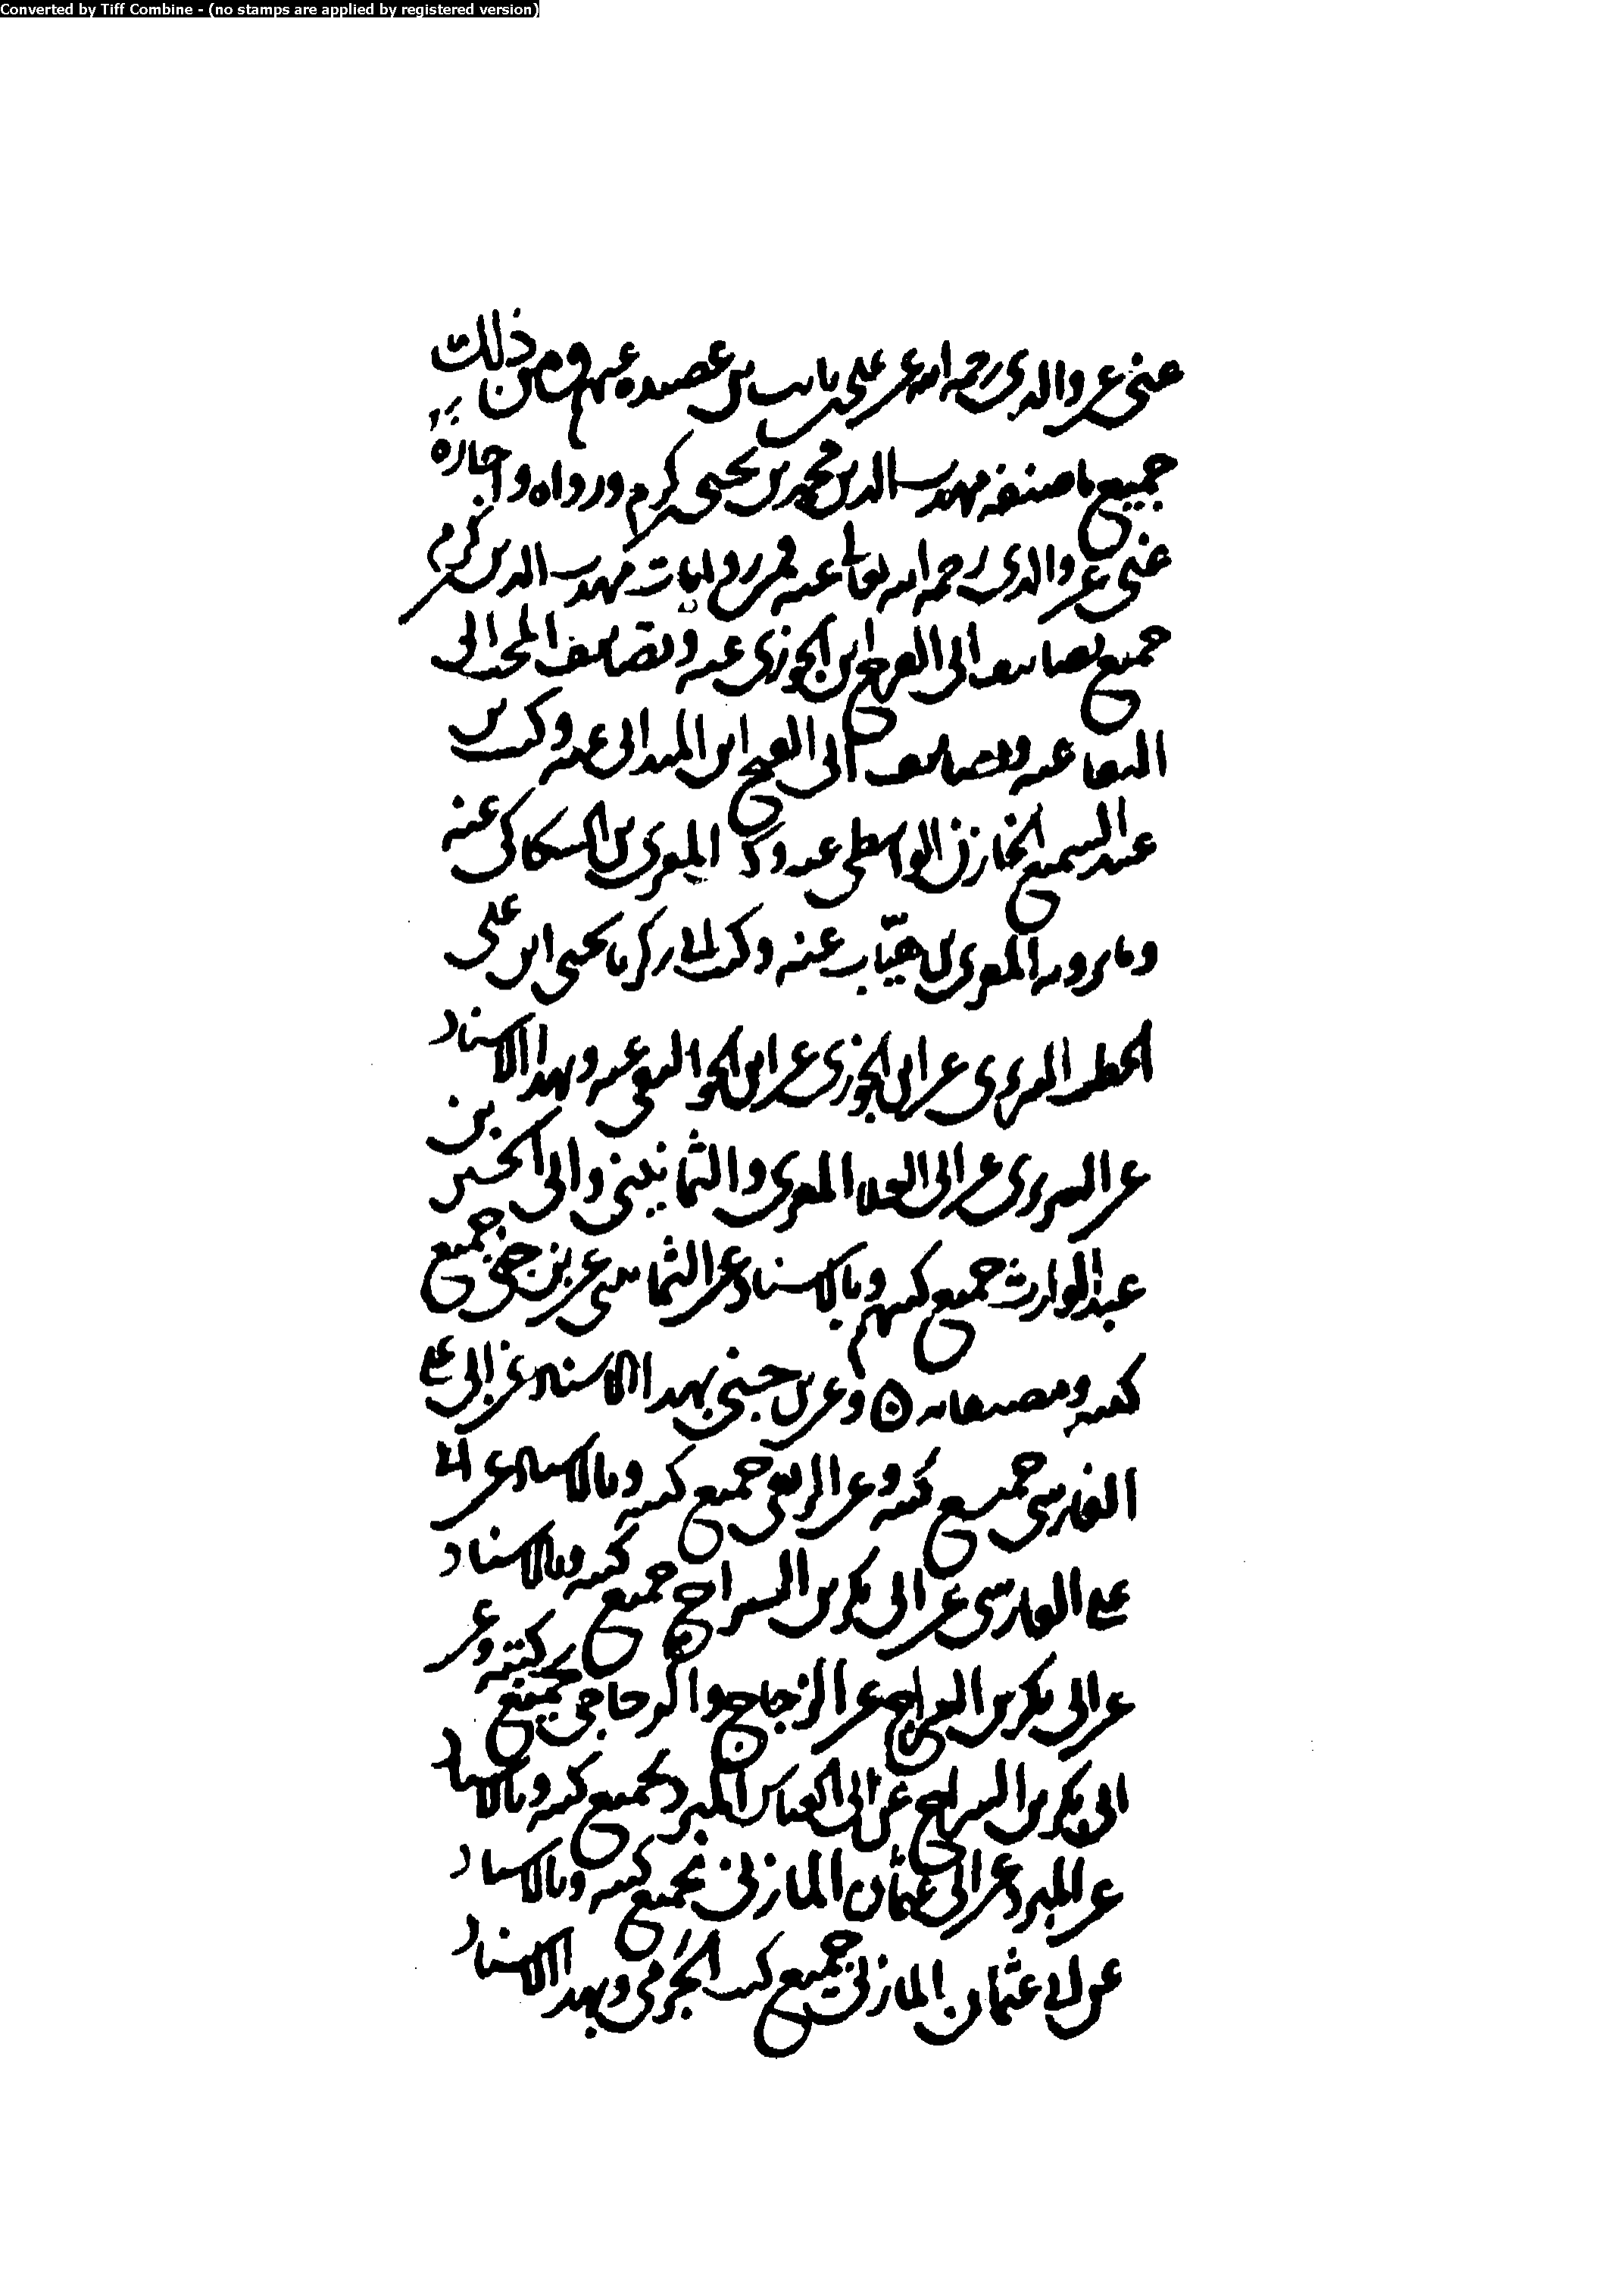 Converted by Tiff Combine - (no stamps are applied by registered version)
عنى عن والدى رحمه الله عن على بن ثابت بن عصيده عنهم ومن ذلك
جميع ما صنفه مهذب الدين محمد بن يحيى كرم ورواه واجازه
عنى عن والدى رحمه الله تعالى عنه فمن روايات مهذب الدين كرم
جميع تصانيف ابى الفرج ابن الجوزى عنه وتصانيف
ابى البقا عنه وتصانيف ابى الفتح ابن الميدانى عنه وكتب بن
عبد السميع الخازن الواسطى عنه وكذا المقرى بن السكاكى عنه
وما يرويه المقرى بن عنه وكتب ابى زكريا يحيى ابن على
الخطيب التبريزى عن ابن الجوزى عن ابن الجواليقى عنه وبهذا الاسناد
عن التبريزى عن ابى العلا المعرى والثمانينى وابى الحسين بن
عبد الوارث جميع كتبهم وبالاسناد عن الثمانينى عن بن جنى جميع
كتبه ومصنفاته ۞ وعن بن جنى بهذا الاسناد عن ابى على
الفارسى جميع كتبه وعن الربعى جميع كتبه وبالاسناد عن ابى
على الفارسى عن ابى بكر بن السراج جميع كتبه وبالاسناد
عن ابى بكر بن السراج عن الزجاج والزجاجى بجميع كتبه وعن
ابى بكر بن السراج عن ابى العباس المبرد بجميع كتبه وبالاسناد
عن المبرد عن ابى عثمان المازنى بجميع كتبه وبالاسناد
عن ابى عثمان المازنى جميع كتب الجرمى وبهذا الاسناد